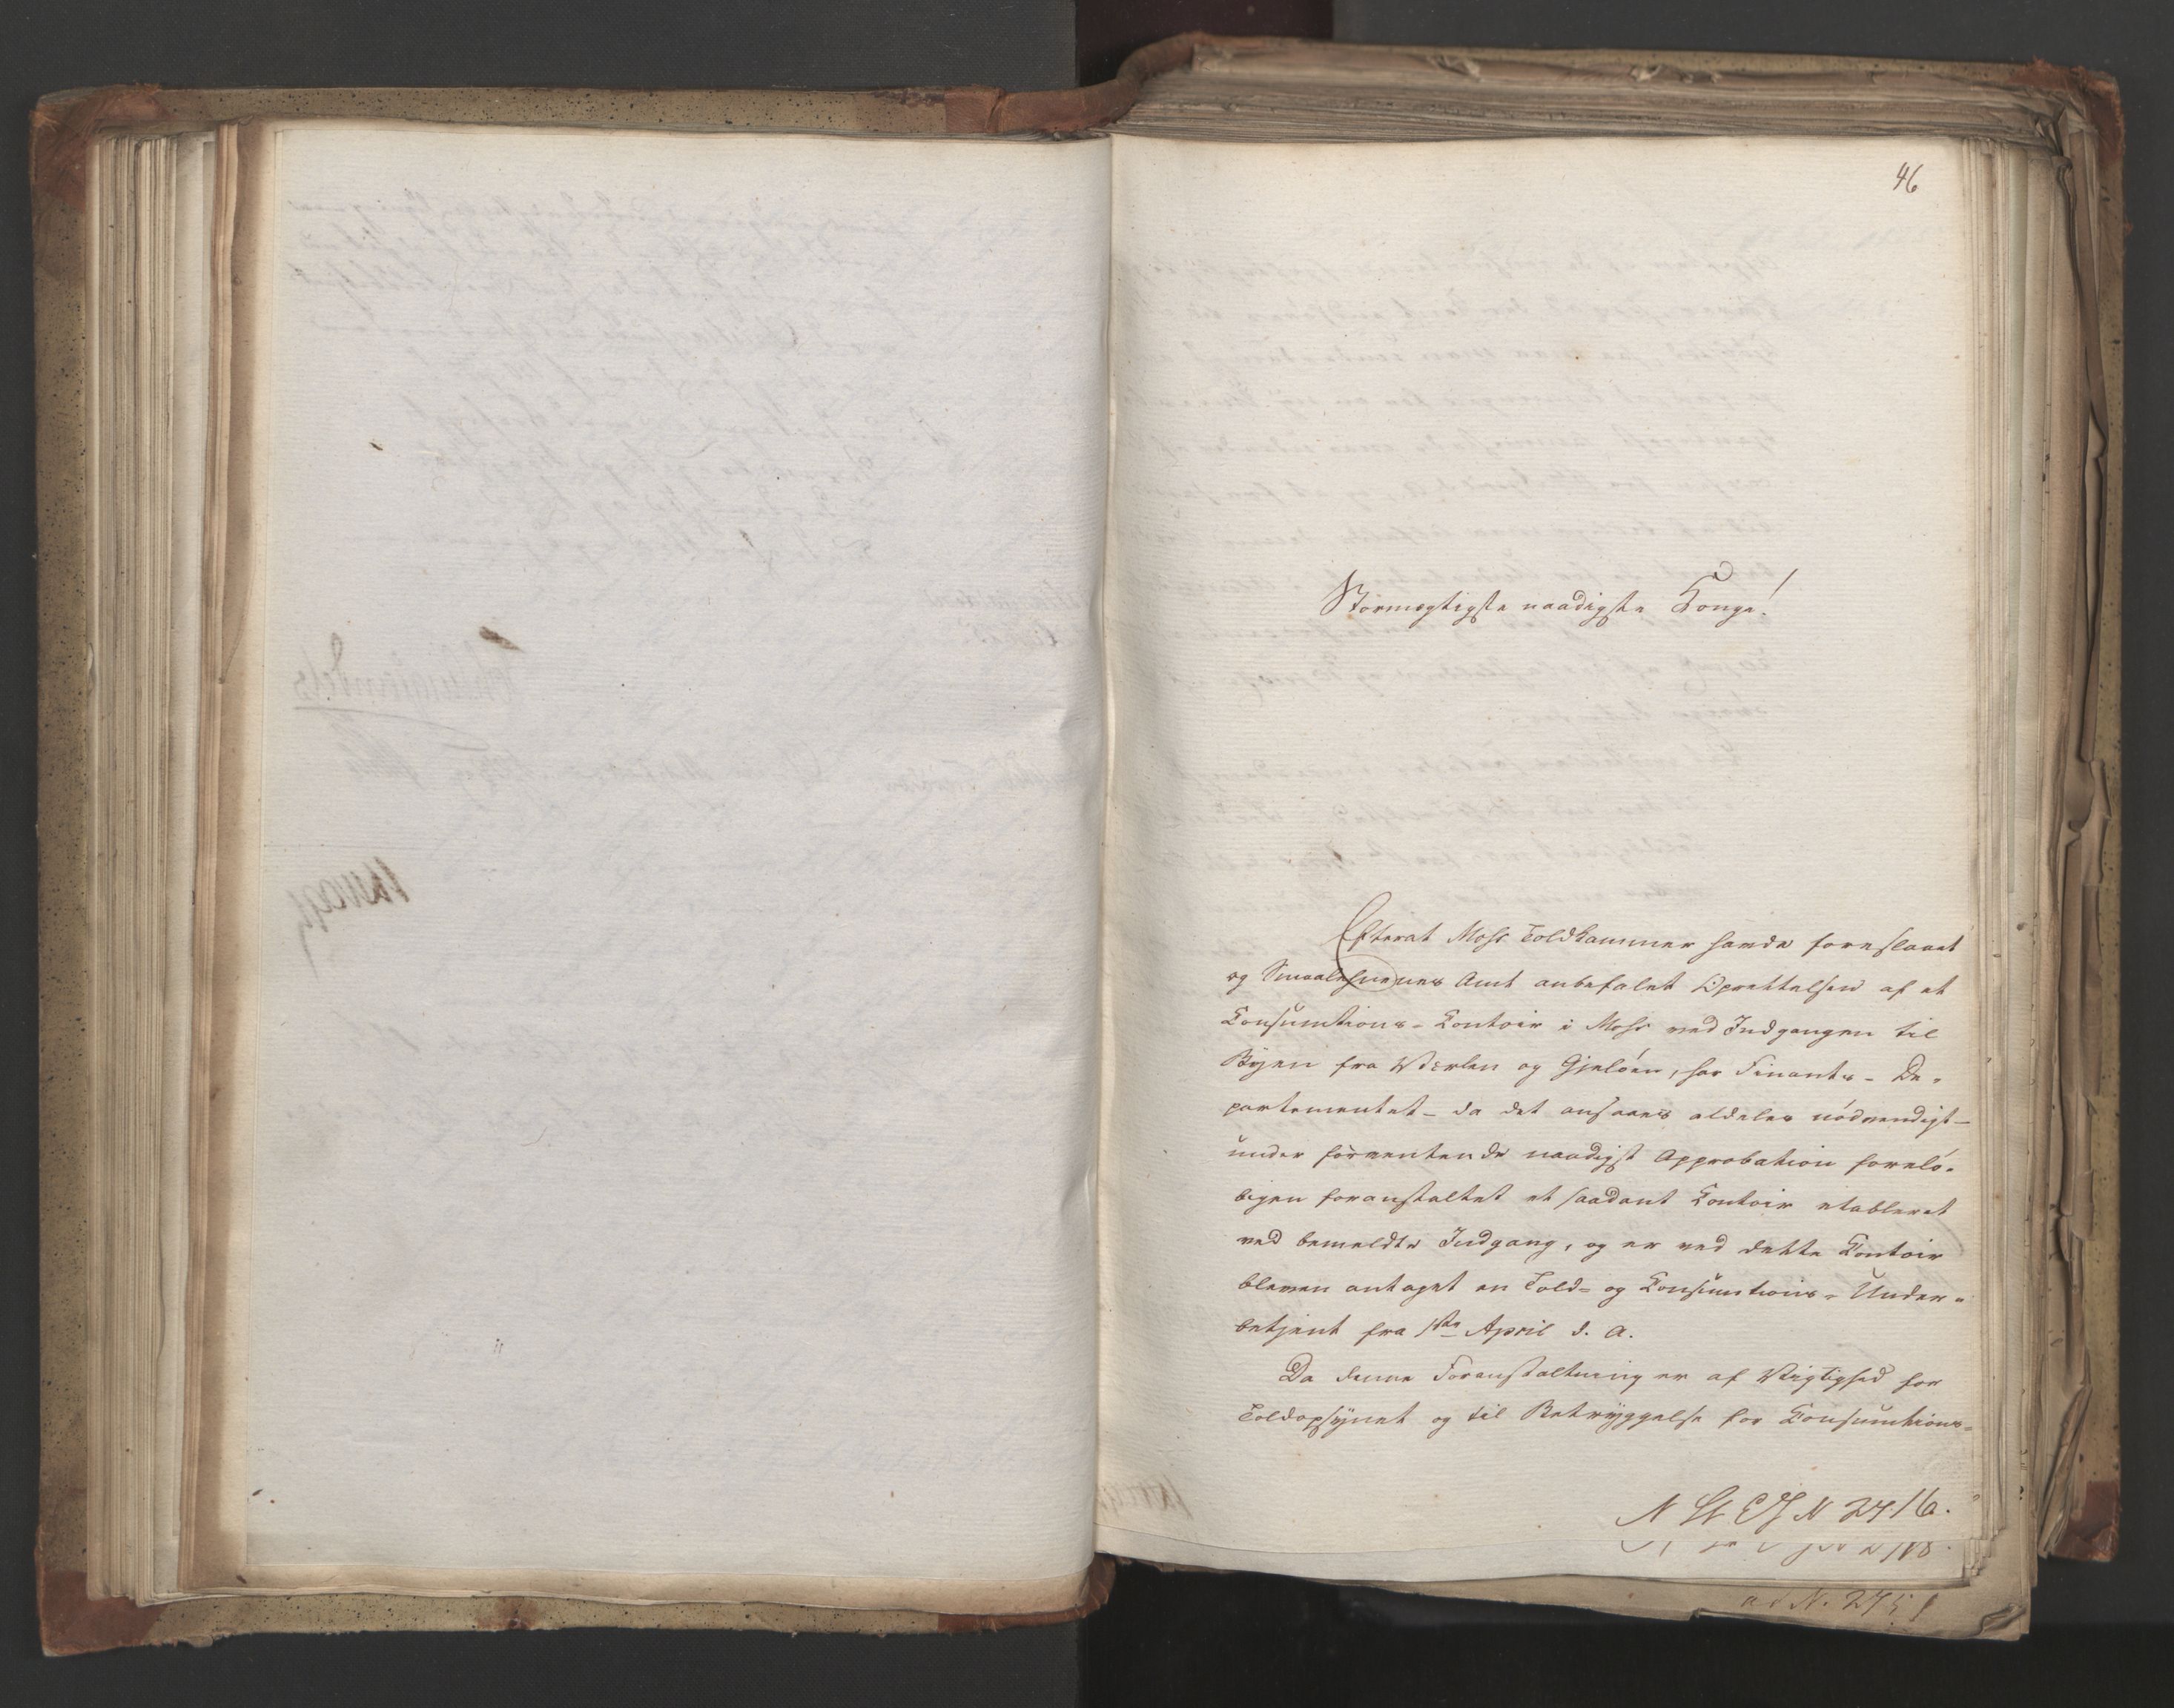 46
Stormægtigste naadigste Konge!
Efterat Moss Toldkammer havde foreslaaet
og Smaalehnenes Amt anbefalet Oprettelsen af et
Consumtions-Contoir i Moss ved Indgangen til
Byen fra Værlen og Gjelöen, har Finants-De-
partementet - da det ansaaes aldeles nödvendigt -
under forventende naadigst Approbation forelö-
bigen foranstaltet et saadant Contoir etableret
ved bemeldte Indgang, og er ved dette Contoir
bleven antaget en Told- og Consumtions-Under-
betjent fra 1ste April d. A.
Da denne Foranstaltning er af Vigtighed for
Toldopsynet og til Betryggelse for Consumtions-
N St Ex N 2416.
ad N. 2451